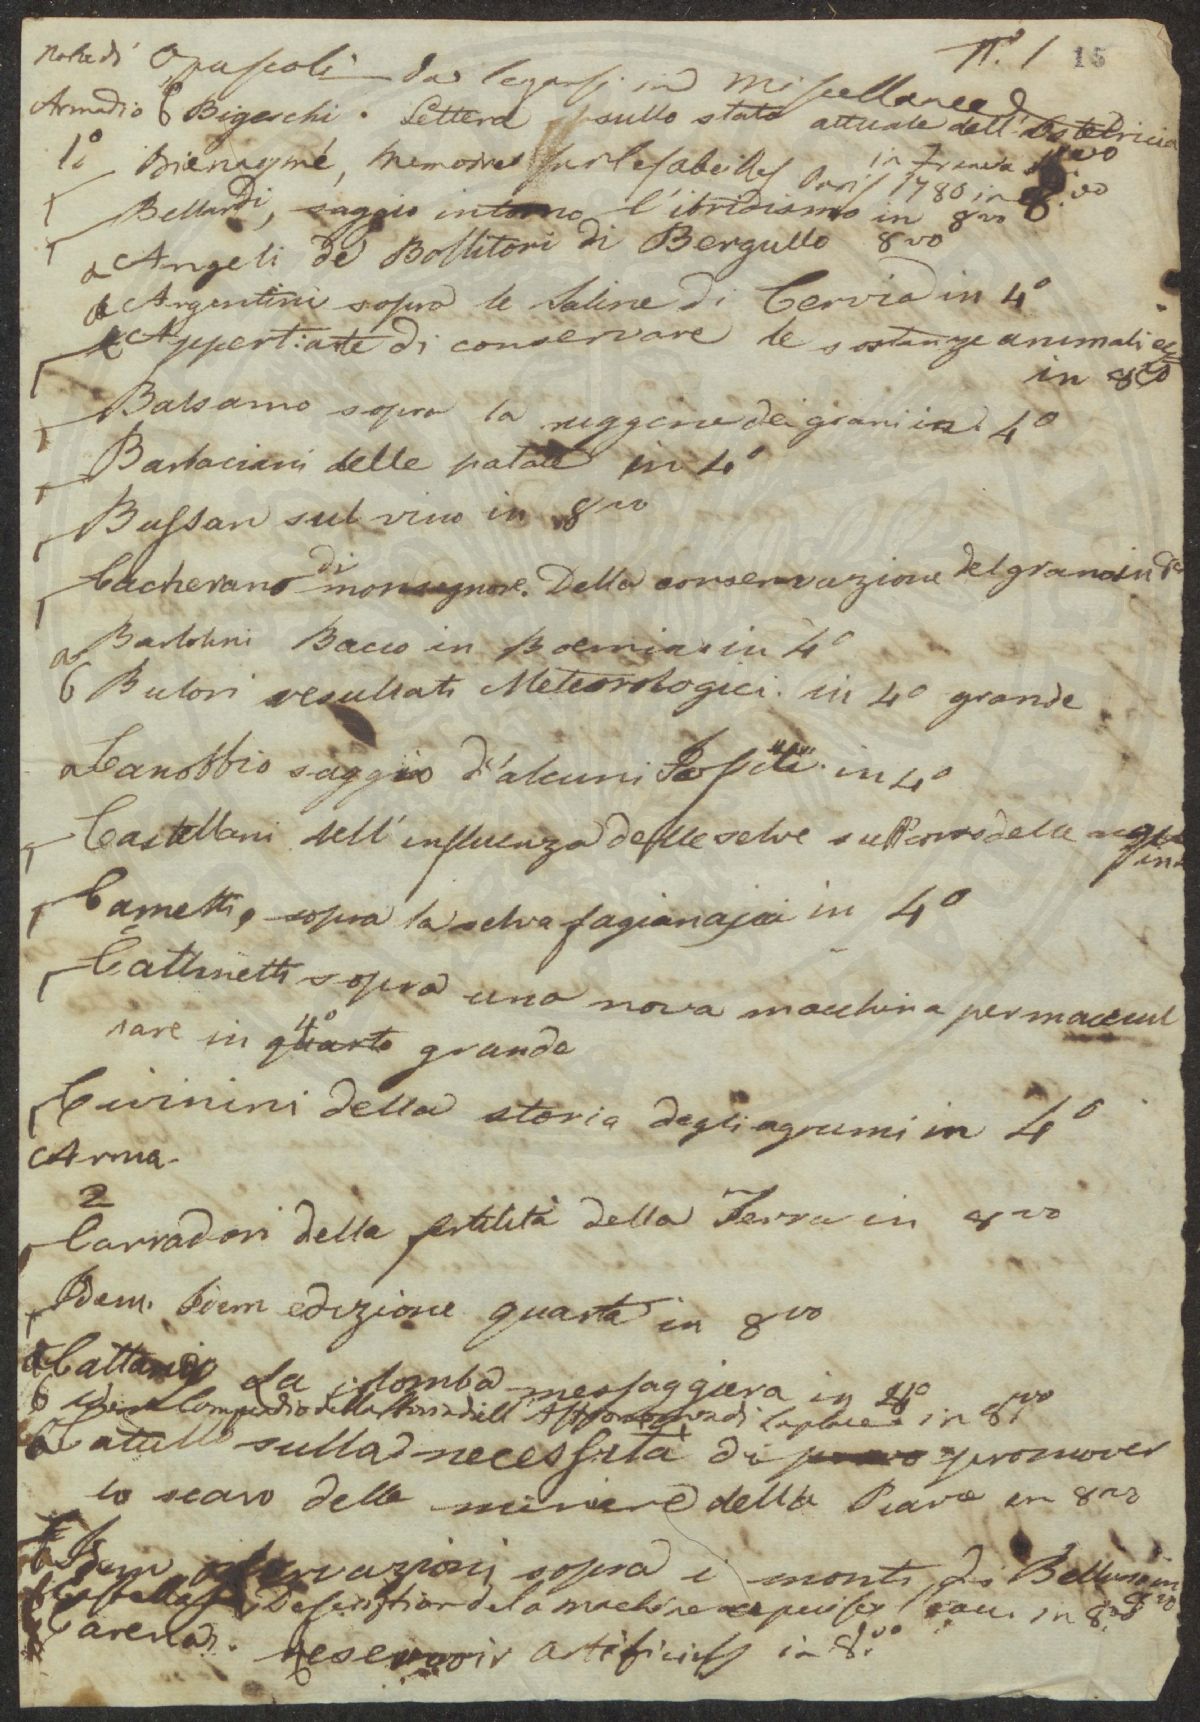 N.º 1 15
Nota di Opuscoli da legarsi in Miscellanee
Armadio 6 Bigeschi. Lettera sullo stato attuale dell'Ostetricia
1º in Firenze 8vo
Bienaymé, Memoires sur les abeilles Paris 1780 in 8.vo
r Bellardi, saggio intorno l'ibridismo in 8vo
a Angeli de Bollitori di Bergullo 8vo
a Argentini sopra le Saline di Cervia in 4º
Appert: arte di conservare le sostanze animali ec
in 8vo
r Balsamo sopra la ruggine dei grani in 4º
r Barbaciani delle patate in 4º
r Bussan sul vino in 8vo
r Cacherano di monsignore. Della conservazione del grano in
a Bartolini Bacco in Boemia in 4º
6 Butori resultati Meteorologici. in 4º grande
a Canobbio saggio d'alcuni in 4º
r Castellani dell'influenza delle selve sul corso delle
in
r Cametti, sopra la selva fagianaja in 4º
r Cattinetti sopra una nova macchina per maciul
4º
iare in quarto grande
r Civinini della storia degli agrumi in 4º
Arma.
2
Carradori della fertilità della Terra in 8vo
r Idem. Idem edizione quarta in 8vo
La colomba messaggiera in 4º
6 idem Compendio della Storia dell'Astronomia di Laplace in 8.vo
Catullo sulla necessità di promover
lo scavo delle miniere della Piave in 8vo
6 Idem osservazioni sopra i monti di Belluno in
8vo
de la machine in 8.vo
6 Carena. reservoir artificiels in 8.vo